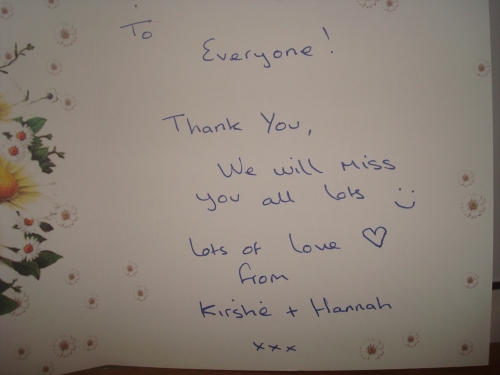 To
Everyone!
Thank You,
We will miss
you all lots :)
lots of love ♡
from
Kirshie + Hannah
xxx